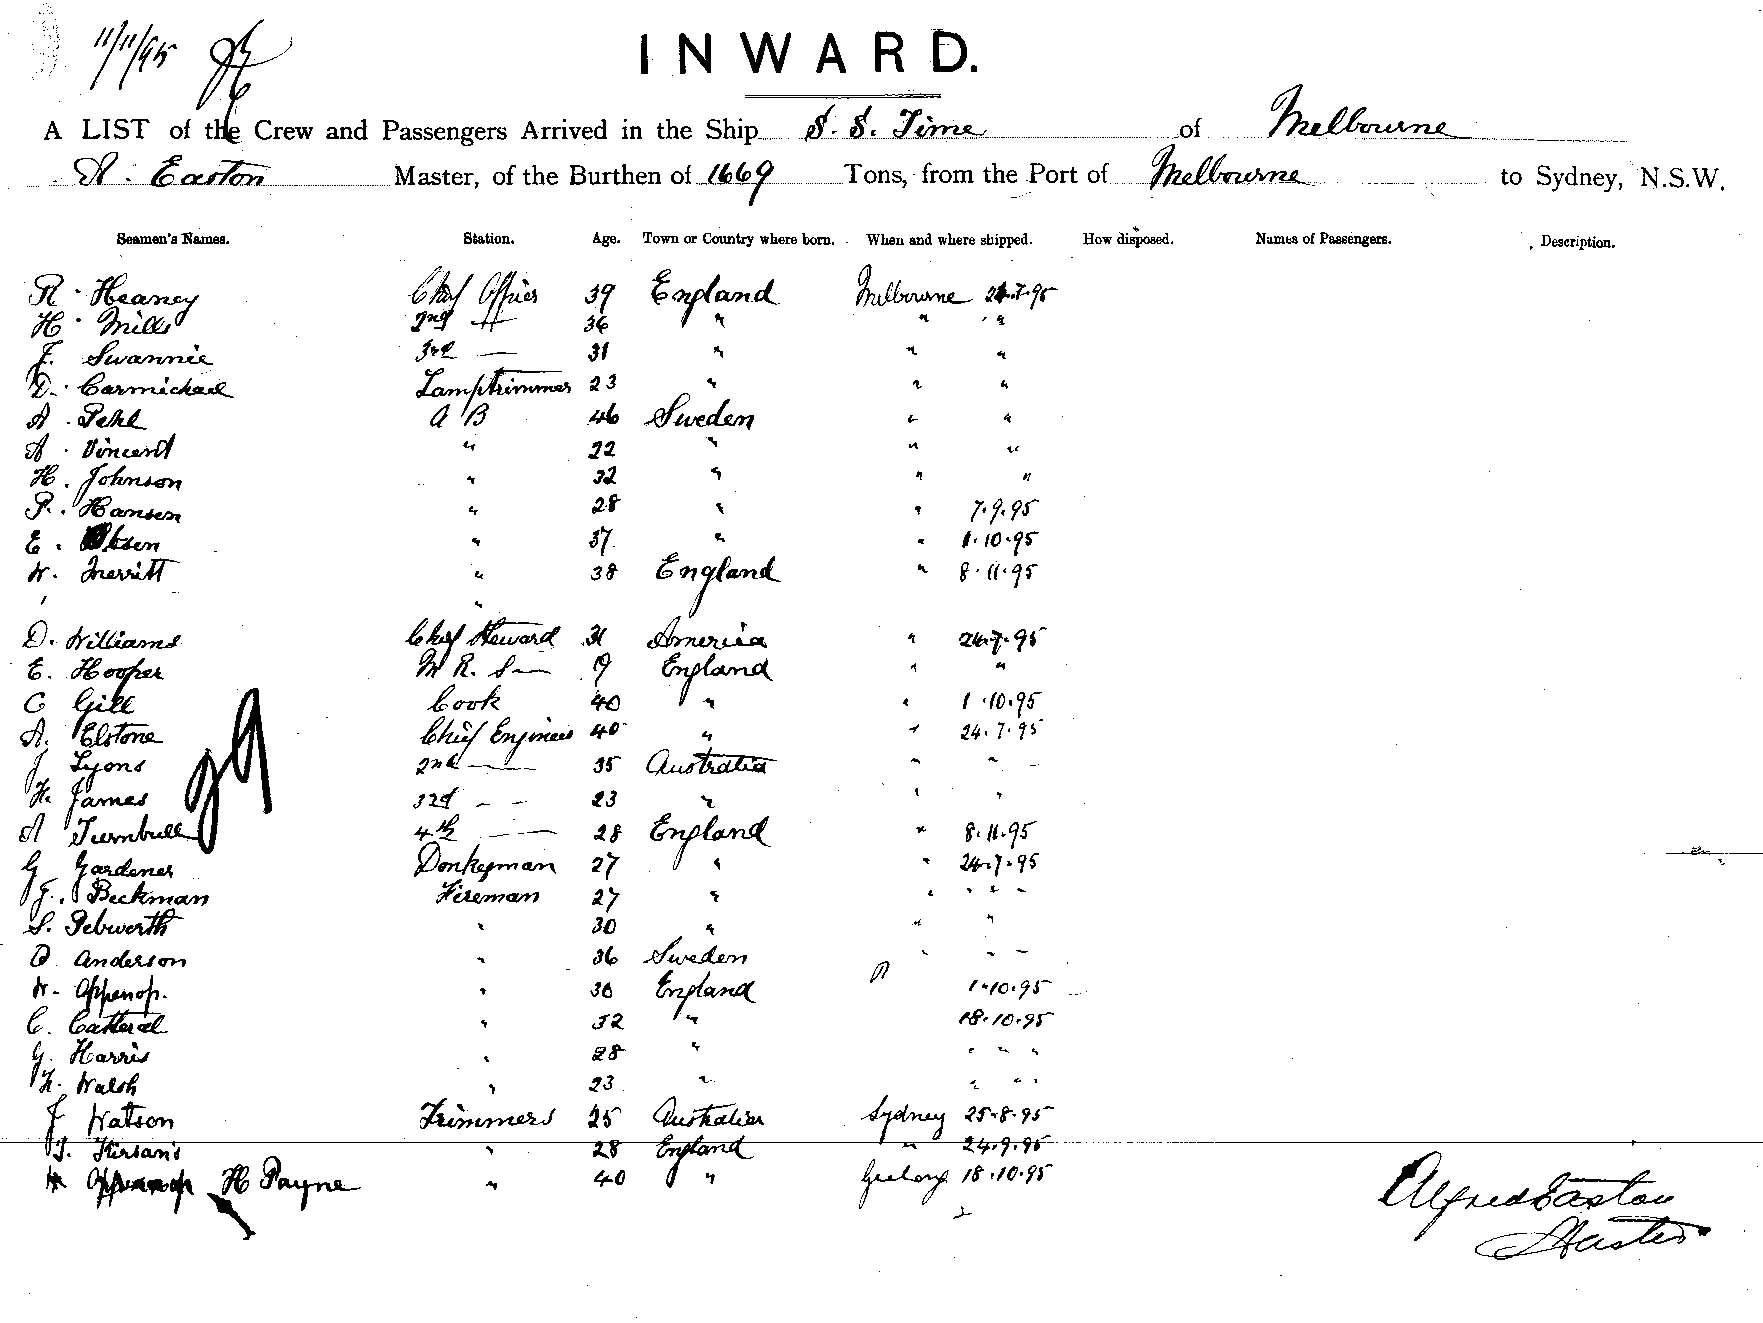 11/11/95
INWARD.
A LIST of the Crew and Passengers Arrived in the Ship S. S. Time of Melbourne
A. Easton Master, of the Burthen of 1669 Tons, from the Port of Melbourne to Sydney, N.S.W.
Seamen's Names. Station. Age. Town or Country where born. When and where shipped. How disposed. Names of Passengers. Description.
R. Heaney Chief Officer 39 England Melbourne 24.7.95
H. Mills 2nd " 36 " " "
J. Swannie 3rd — 31 " " "
D. Carmichael Lamptrimmer 23 " " "
A. Pehl A B 46 Sweden " "
A. Vincent " 22 " " "
H. Johnson " 32 " " "
P. Hansen " 28 " " 7.9.95
E. Olsen " 37 " " 1.10.95
W. Merritt " 38 England " 8.11.95
"
D. Williams Chief Steward 31 America " 24.7.95
E. Hooper M R. S— 19 England " "
C Gill Cook 40 " " 1.10.95
A. Elstone Chief Engineer 40 " " 24.7.95
J Lyons 2nd — 35 Australia " " -
H. James 3rd - - 23 " " "
A Turnbull 4th — 28 England " 8.11.95
G Gardener Donkeyman 27 " " 24.7.95
J. Beckman Fireman 27 " " " " "
S. Pebworth " 30 " " "
O Anderson " 36 Sweden " " -
W. Appenop. " 30 England 1.10.95
C. Catteral " 32 " 18.10.95
G. Harris " 28 " " " "
H. Walsh " 23 " " " "
J Watson Trimmers 25 Australia Sydney 25.8.95
T. " 28 England " 24.9.95
H Payne " 40 " Geelong 18.10.95
Alfred Easton
Master